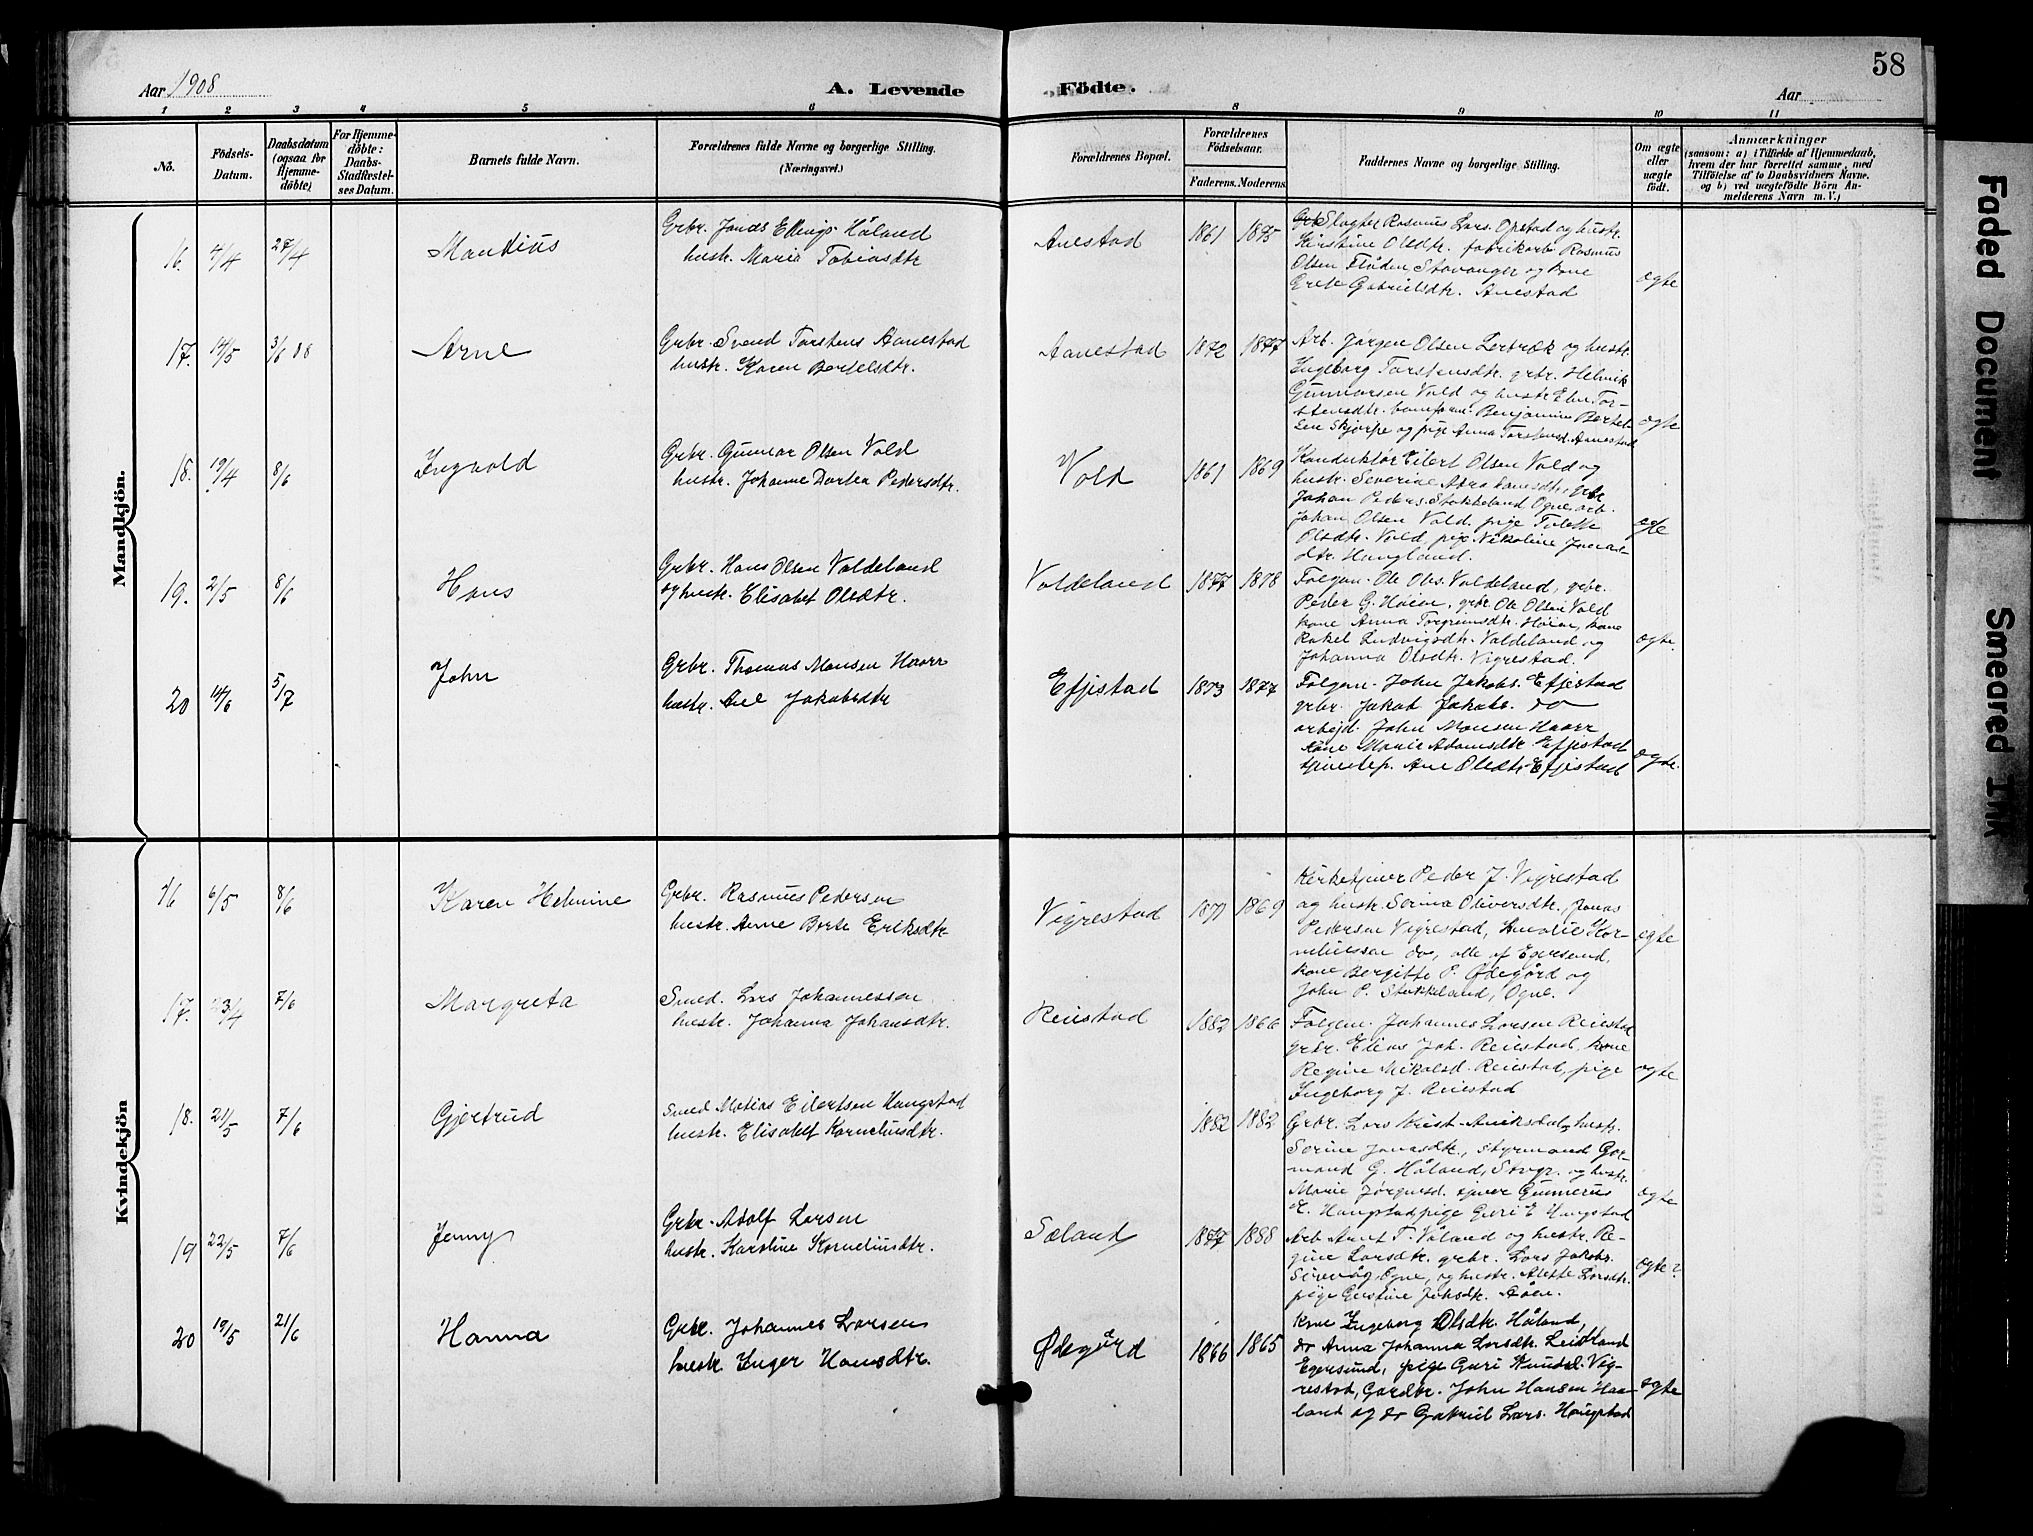 58
Aar 1908
A. Levende Födte.
Aar
1 2 3 4 5 6 8 9 10 11
No.
Födsels-Datum.
Daabsdatum (ogsaa for Hjemme-döbte)
For Hjemme-döbte: Daabs-Stadfæstel-ses Datum.
Barnets fulde Navn.
Forældrenes fulde Navne og borgerlige Stilling. (Næringsvei.)
Forældrenes Bopæl.
Forældrenes Födselsaar.
Faderens. Moderens.
Faddernes Navne og borgerlige Stilling.
Om ægte eller uægte födt.
Anmærkninger
(saasom: a) i Tilfælde af Hjemmedaab,
hvem der har forrettet samme, med
Tilföielse af to Daabsvidners Navne.
og b) ved uægtefödte Börn An-
melderens Navn m. V.)
Mandkjön.
16. 4/4 27/4 Mandius
Grbr. Jonas Ellings. Håland
hustr. Maria Tobiasdtr
Anestad 1861 1875
Slagter Rasmus Lars. Opstad og hustr.
Kirstine Olsdtr. fabrikarb. Rasmus
Olsen Flåden Stavanger og kone
Grete Gabrielsdtr. Anestad
ægte
17. 14/5 3/6 08 Arne
Grbr. Svend Torstens Aanestad
hustr. Karen Bertelsdtr.
Aanestad 1872 1877
Arb. Jørgen Olsen Lerbræk og hustr.
Ingeborg Torstensdtr. grbr. Helmik
Gunnarsen Vold og hustr. Elen Tor-
stensdtr. Benjamin Bertel-
sen Skjørpe og pige Anna Torstensd. Aanestad
ægte
18. 19/4 8/6 Ingvald
Grbr. Gunnar Olsen Vold
hustr. Johanne Dortea Pedersdtr.
Vold 1861 1869
Konduktør Eilert Olsen Vold og
hustr. Severine dtr. grbr
Johan Peders. Stokkeland Ogne arb.
Johan Olsen Vold. pige Tolette
Olsdtr. Vold, pige Nikoline Jonas-
dtr. Haugland.
ægte
19. 2/5 8/6 Hans
Grbr. Hans Olsen Valdeland
og hustr. Elisabet Olsdtr.
Valdeland 1877 1878
Folgem. Ole Ols. Valdeland, grbr.
Peder G. Høiar, grbr. Ole Olsen Vold
kone Anna Torgrimsdtr. Høiar, kone
Rakel Ludvigsdtr. Valdeland og
Johanna Olsdtr. Vigrestad.
ægte.
20 14/6 5/7 John
Grbr. Thomas Monsen Haarr
hustr. Ane Jakobsdtr
Efjestad 1873 1877
Folgem. John Jakobs. Efjestad
grbr. Jakob Jakobs. do
arbejd. John Monsen Haarr
kone Marie Adamsdtr. Efjestad
tjenestep. Ane Olsdtr. Efjestad
ægte.
Kvindekjön
16 6/5 8/6 Karen Helmine
Grbr. Rasmus Pedersen
hustr. Anne Berte Eriksdtr.
Vigrestad 1871 1869
Kirketjener Peder J. Vigrestad
og hustr. Serina Oliversdtr. Jonas
Pedersen Vigrestad, Amalie Kor-
neliussen do, alle af Egersund,
kone Bergitte P. Ødegård og
John P. Stokkeland, Ogne.
ægte
17. 23/4 7/6 Margreta
Smed. Lars Johannessen
hustr. Johanna Johansdtr.
Reiestad 1882 1866
Folgem. Johannes Larsen Reiestad
grbr. Elias Joh. Reiestad, kone
Regine Mikalsd. Reiestad, pige
Ingeborg J. Reiestad
ægte
18. 21/5 7/6 Gjertrud
Smed Matias Eilertsen Haugstad
hustr. Elisabet Korneliusdtr.
1882 1882
Grbr. Lars Krist. Aniksdal og hustr.
Serine Jonasdtr., styrmand Gar-
mand G. Håland, Stvgr. og hustr.
Marie Jørgensd. tjener Gunnerus
E. Haugstad pige Guri E Haugstad
ægte
19 22/5 7/6 Jenny
Grbr. Adolf Larsen
hustr. Karoline Korneliusdtr.
Sæland 1877 1888
Arb Arnt T. Våland og hustr. Re-
gine Larsdtr. grbr. Lars Jakobs.
Sirevåg, Ogne, og hustr. Alette Larsdtr.
pige Gustine Jakobdtr. Åsen.
ægte?
20 19/5 21/6 Hanna
Grbr. Johannes Larsen
hustr. Inger Hansdtr.
Ødegård 1866 1865
kone Ingeborg Olsdtr. Håland,
do Anna Johanna Larsdtr. Leidland
Egersund, pige Guri Knudsd. Vig-
restad, Gardbr. John Hansen Haa-
land og do Gabriel Lars. Haugstad
ægte
Faded Document
Smeared Ink